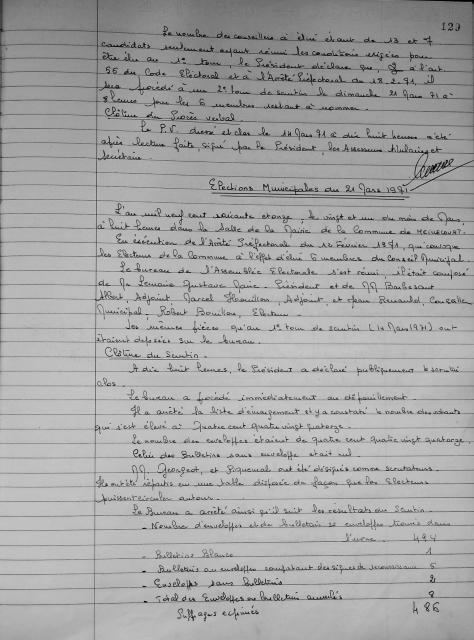 129
Le nombre des conseillers à élire étant de 13 et 7
candidats seulement ayant réuni les conditions exigées pour
être élu au 1° tour, le Président déclare que, à l'art.
56 du Code Electoral et à l'Arrêté Préfectoral du 18.2.71, il
sera procédé à un 2° tour de scrutin le dimanche 21 Mars 71 à
8 heures pour les 6 membres restant à nommer.
Clôture du Procès verbal.
Le P.V. dressé et clos le 14 Mars 71 à dix huit heures a été
après lecture faite, signé par le Président, les Assesseurs titulaires et
secrétaire.
Elections Municipales du 21 Mars 1971
L'an mil neuf cent soixante et onze, le vingt et un du mois de Mars,
à huit heures dans la salle de la Mairie de la Commune de
En exécution de l'Arrêté Préfectoral du 12 Février 1971, qui convoque
les Electeurs de la Commune à l'effet d'élire 6 membres du Conseil Municipal.
Le bureau de l'Assemblée Electorale s'est réuni, il était composé
de Mr Lemaire Gustave Maire. Président et de MM
Albert, Adjoint, Marcel Adjoint et Jean Renauld, Conseiller
Municipal, Robert Bouillon, Electeur.
Les mêmes pièces qu'au 1° tour de scrutin (14 Mars 1971) ont
étaient déposées sur le bureau.
Clôture du Scrutin.
A dix huit heures, le Président a déclaré publiquement le scrutin
clos.
Le bureau a procédé immédiatement au dépouillement.
Il a arrêté la liste d'émargement et y a constaté le nombre des votants
qui s'est élevé à Quatre cent quatre vingt quatorze.
Le nombre des enveloppes étaient de quatre cent quatre vingt quatorze.
Celui des Bulletins sans enveloppe était nul.
MM. Georgeot, et Piquemal ont été désignés comme scrutateurs.
Ils ont été répartis en une table disposée de façon que les Electeurs
puissent circuler autour.
Le Bureau a arrêté ainsi qu'il suit les résultats du Scrutin.
- Nombre d'enveloppes et de bulletins sans enveloppes trouvés dans
l'urne. 494
- Bulletins Blancs 1
- Bulletins ou enveloppes comportant des signes de reconnaissance 5
- Enveloppes sans bulletins 2
- Total des Enveloppes ou bulletins annulés 8
Suffrages exprimés 486